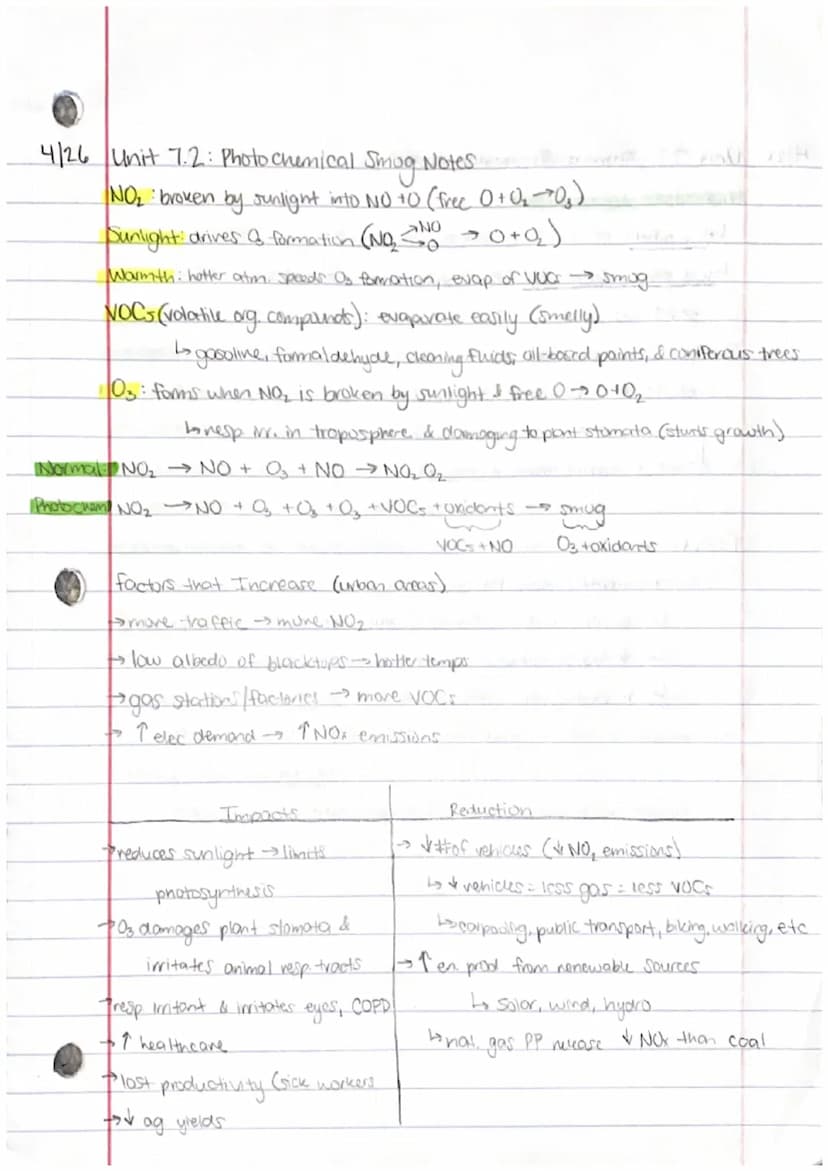 4/26 Unit 7.2: Photochemical Smog Notes
NO₂: broken by sunlight into NO + O (free O + O₂ → O₃)
Sunlight: drives O₃ formation (NO₂ ⇉ NO O → O + O₂)
Warmth: hotter atm. speeds O₃ formation, evap of VOCs → smog
VOCs (volatile org. compounds): evaporate easily (smelly)
↳ gasoline, formaldehyde, cleaning fluids, oil-based paints, & coniferous trees
O₃: forms when NO₂ is broken by sunlight & free O → O+O₂
↳ resp irr. in troposphere & damaging to plant stomata (stunts growth)
Normal: NO₂ → NO + O₃ + NO → NO₂ O₂
Photochem NO₂ → NO + O₃ + O₃ + O₃ + VOCs + oxidants → smog
VOCs + NO O₃ + oxidants
factors that Increase (urban areas)
→ more traffic → more NO₂
→ low albedo of blacktops → hotter temps
→ gas stations/factories → more VOCs
→ ↑ elec demand → ↑ NOx emissions
Impacts Reduction
→ reduces sunlight → limits
photosynthesis
→ O₃ damages plant stomata &
irritates animal resp. tracts
→ resp irritant & irritates eyes, COPD
→ ↑ healthcare
→ lost productivity (sick workers
→ ↓ ag yields
→ ↓ # of vehicles (↓ NO₂ emissions)
↳ ↓ vehicles = less gas = less VOCs
↳ carpooling, public transport, biking, walking, etc
→ ↑ en. prod from renewable sources
↳ Solar, wind, hydro
↳ nat. gas PP release ↓ NOx than coal